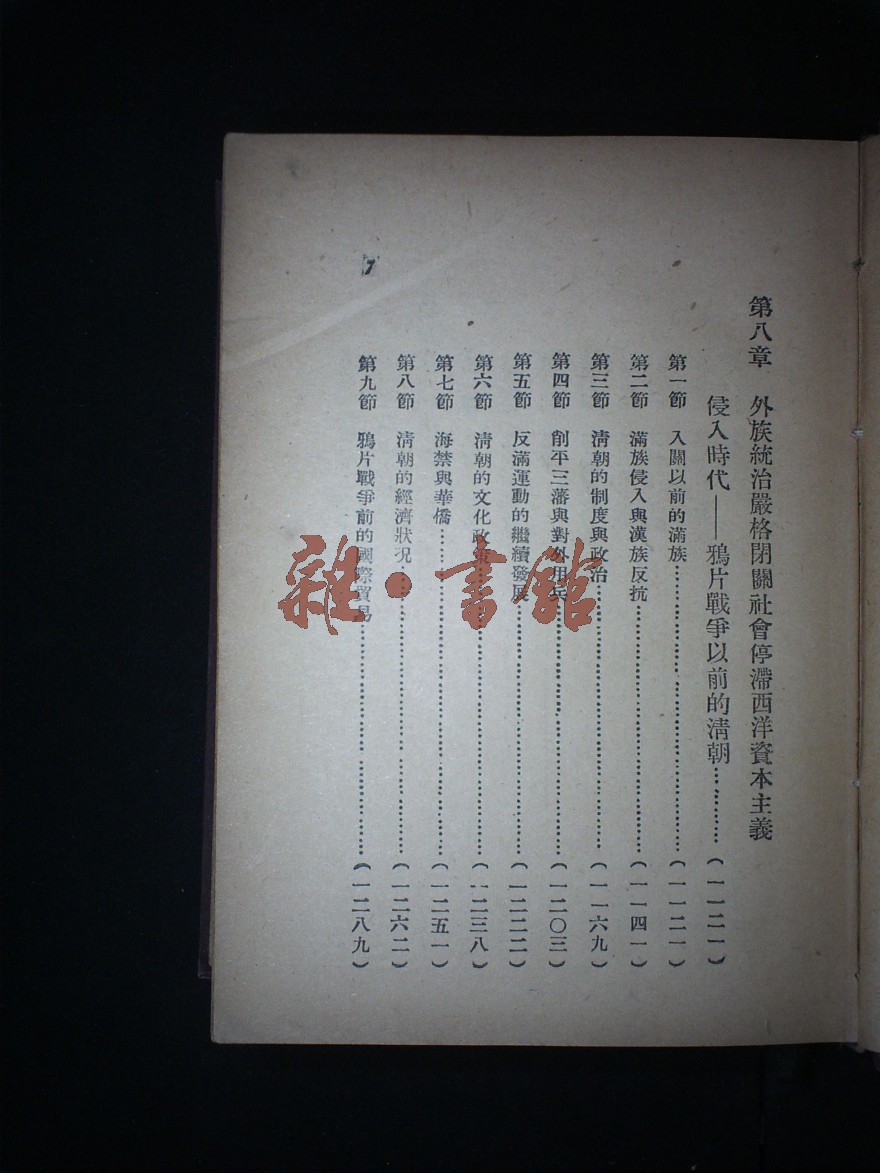 第八章　外族統治嚴格閉關社會停滯西洋資本主義
侵入時代——鴉片戰爭以前的清朝…………（一一二一）
第一節　入關以前的滿族…………（一一二一）
第二節　滿族侵入與漢族反抗…………（一一四一）
第三節　清朝的制度與政治…………（一一六九）
第四節　削平三藩與對外用兵…………（一二〇三）
第五節　反滿運動的繼續發展…………（一二二二）
第六節　清朝的文化政策…………（一二三八）
第七節　海禁與華僑…………（一二五一）
第八節　清朝的經濟狀况…………（一二六二）
第九節　鴉片戰爭前的國際貿易…………（一二八九）
7
雜·書館